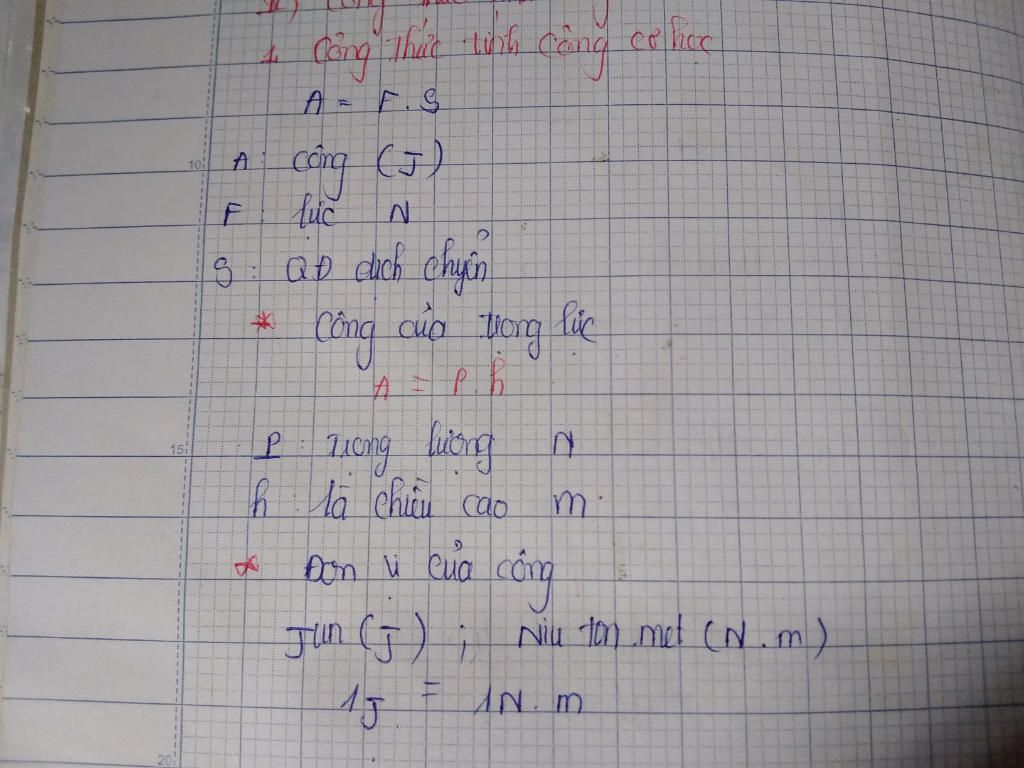 II, Công thức
1, Công thức tính công cơ học
A = F.S
10
A: công (J)
F: lực N
S: QĐ dịch chyển
* Công của trọng lực
A = P.h
15
P: trọng lượng N
h: là chiều cao m
* Đơn vị của công
Jun (J) ; Niu tơn.met (N.m)
1J = 1N.m
20